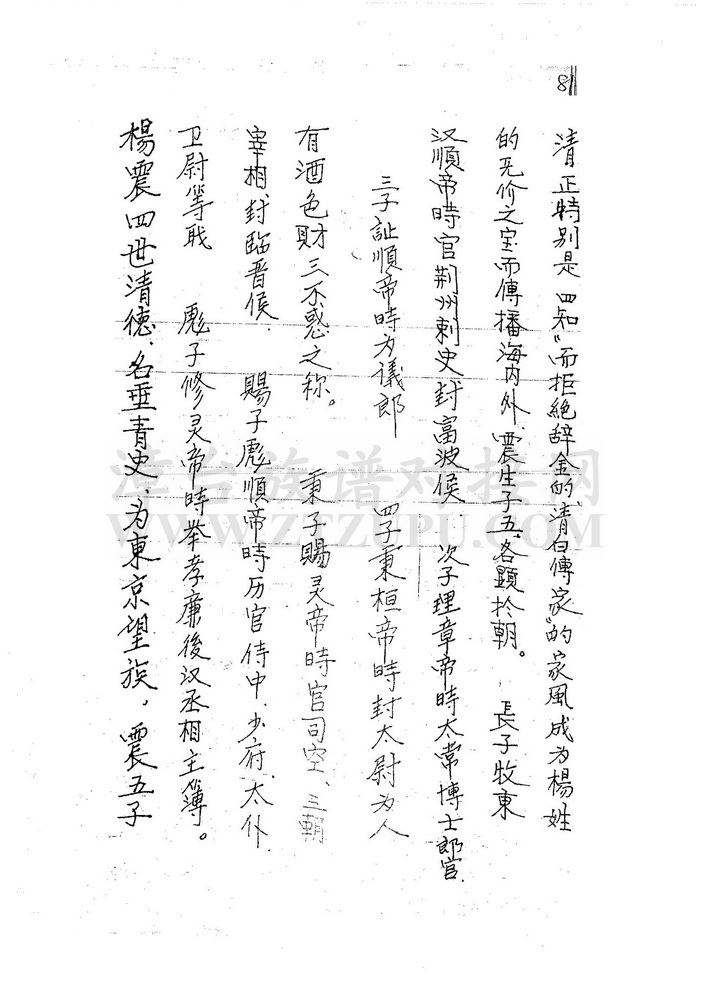 81
清正特别是"四知"而拒絶辞金的"清白傳家"的家風成为楊姓
的无价之宝而傳播海内外.震生子五,各顕扵朝。 長子牧東
汉順帝時官荆州剌史封富波侯 次子理章帝時太常博士郎官.
三子訨順帝時为议郎 四子秉桓帝時封太尉为人
有酒色財三不惑之称。 秉子賜灵帝時官司空、三朝
宰相,封临晋侯. 賜子彪順帝時历官侍中.少府.太仆.
卫尉等戝 彪子修灵帝時举孝廉後汉丞相主簿。
楊震四世清德.名垂青史,为東京望族,震五子
湾台族谱对接网
WWW.ZTZUPU.COM